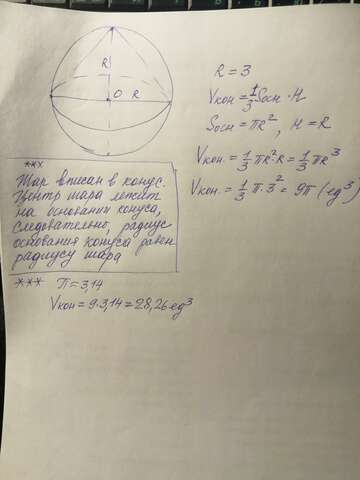 R
O R
R = 3
Vкон = 1/3 Sосн · H
Sосн = πR², H = R
Vкон = 1/3 πR²·R = 1/3 πR³
Vкон = 1/3 π·3² = 9π (ед³)
***
Шар вписан в конус.
Центр шара лежит
на основании конуса,
следовательно, радиус
основания конуса равен
радиусу шара
*** π = 3,14
Vкон = 9·3,14 = 28,26 ед³